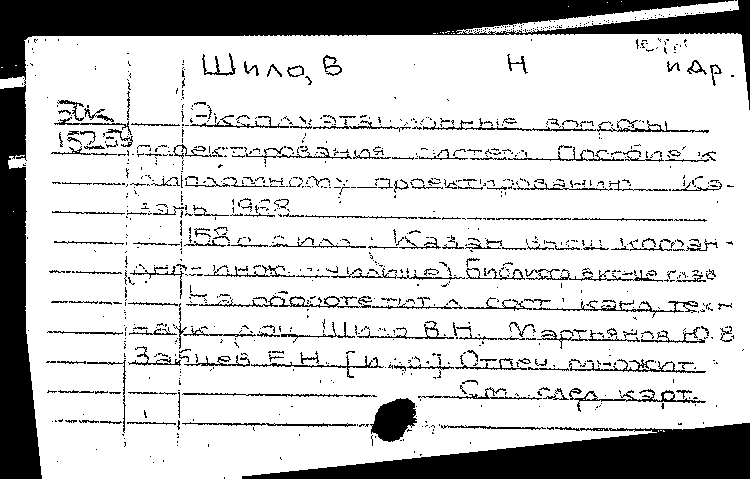 Шило, В Н и др.
ЭДК Эксплуатационные вопросы
15259 проектирования систем Пособие к
дипломному проектированию Ка-
зань, 1968
158 с с илл. (Казан высш коман-
дно-инж училище) Библиогр в конце глав
На обороте тит л сост: канд, техн
наук, доц Шило В.Н., Мартьянов Ю.В
Зайцев Е.Н. [и др.] Отпеч. множит.
См. след, карт.